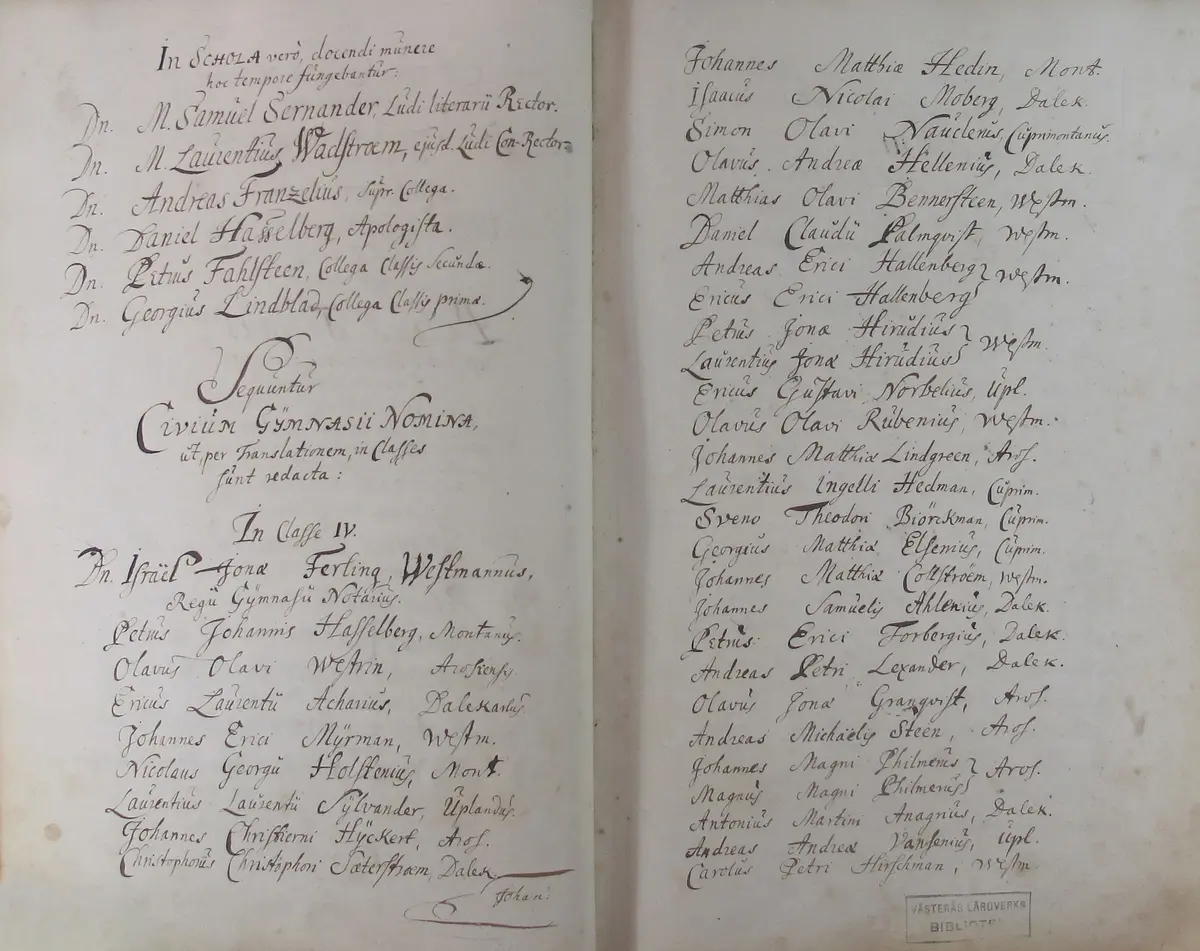 In SCHOLA verò, docendi munere
hoc tempore fungebantur:
Dn. M. Samuel Sernander, Ludi literarii Rector.
Dn. M. Laurentius Wadstroem, ejusd. Ludi Con-Rector.
Dn. Andreas Franzelius, Supr. Collega.
Dn. Daniel Hasselberg, Apologista.
Dn. Petrus Fahlsteen, Collega Classis Secundæ.
Dn. Georgius Lindblad, Collega Classis primæ.
Sequuntur
CIVIUM GYMNASII NOMINA,
ut, per Translationem, in Classes
sunt redacta:
In Classe IV.
Dn. Israël Jonæ Ferling, Westmannus,
Regii Gymnasii Notarius.
Petrus Johannis Hasselberg, Montanus.
Olavus Olavi Westrin, Arosiensis.
Ericus Laurentii Acharius, Dalekarlus.
Johannes Erici Myrman, Westm.
Nicolaus Georgii Holstenius, Mont.
Laurentius Laurentii Sylvander, Uplandus.
Johannes Christierni Hyckert, Aros.
Christophorus Christophori Sæterstroem, Dalek.
Johan:
Johannes Matthiæ Hedin, Mont.
Isaacus Nicolai Moberg, Dalek.
Simon Olavi Nauclerus, Cuprimontanus.
Olavus Andreæ Hellenius, Dalek.
Matthias Olavi Bennersteen, Westm.
Daniel Claudii Palmqvist, Westm.
Andreas Erici Hallenberg } Westm.
Ericus Erici Hallenberg
Petrus Jonæ Hirudius } Westm.
Laurentius Jonæ Hirudius
Ericus Gustavi Norbelius, Upl.
Olavus Olavi Rubenius, Westm.
Johannes Matthiæ Lindgreen, Aros.
Laurentius Ingelli Hedman, Cuprim.
Sveno Theodori Biörckman, Cuprim.
Georgius Matthiæ Elfenius, Cuprim.
Johannes Matthiæ Collstroem, Westm.
Johannes Samuelis Ahlenius, Dalek.
Petrus Erici Forbergius, Dalek.
Andreas Petri Lexander, Dalek.
Olavus Jonæ Granqvist, Aros.
Andreas Michaëlis Steen, Aros.
Johannes Magni Philmerus } Aros.
Magnus Magni Philmerus
Antonius Martini Anagrius, Dalek.
Andreas Andreæ Upl.
Carolus Petri Hirschman, Westm.
VÄSTERÅS LÄROVERKS
BIBLIOTEK